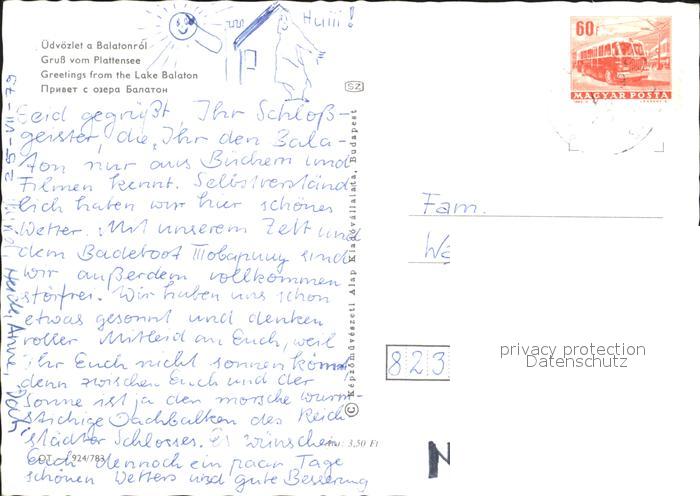 Huiii!
Üdvözlet a Balatonról
Gruß vom Plattensee
Greetings from the Lake Balaton
Привет с озера Балатон
SZ
60f
MAGYAR POSTA
Seid gegrüßt, Ihr Schloß-
geister, die Ihr den Bala-
ton nur aus Büchern und
Filmen kennt. Selbstverständ
lich haben wir hier schönes
Wetter. Mit unserem Zelt und
dem Badeboot sind
wir außerdem vollkommen
störfrei. Wir haben uns schon
etwas gesonnt und denken
voller Mitleid an Euch, weil
Ihr Euch nicht sonnen könnt,
denn zwischen Euch und der
Sonne ist ja der morsche wurm
stichige Dachbalken des Reich
städter Schlosses. Es wünschen
Euch dennoch ein paar Tage
schönen Wetters und gute Besserung
Ára: 3,50 Ft
924/783
© Képzőművészeti Alap Kiadóvállalata, Budapest
Fam.
823
privacy protection
Datenschutz
N